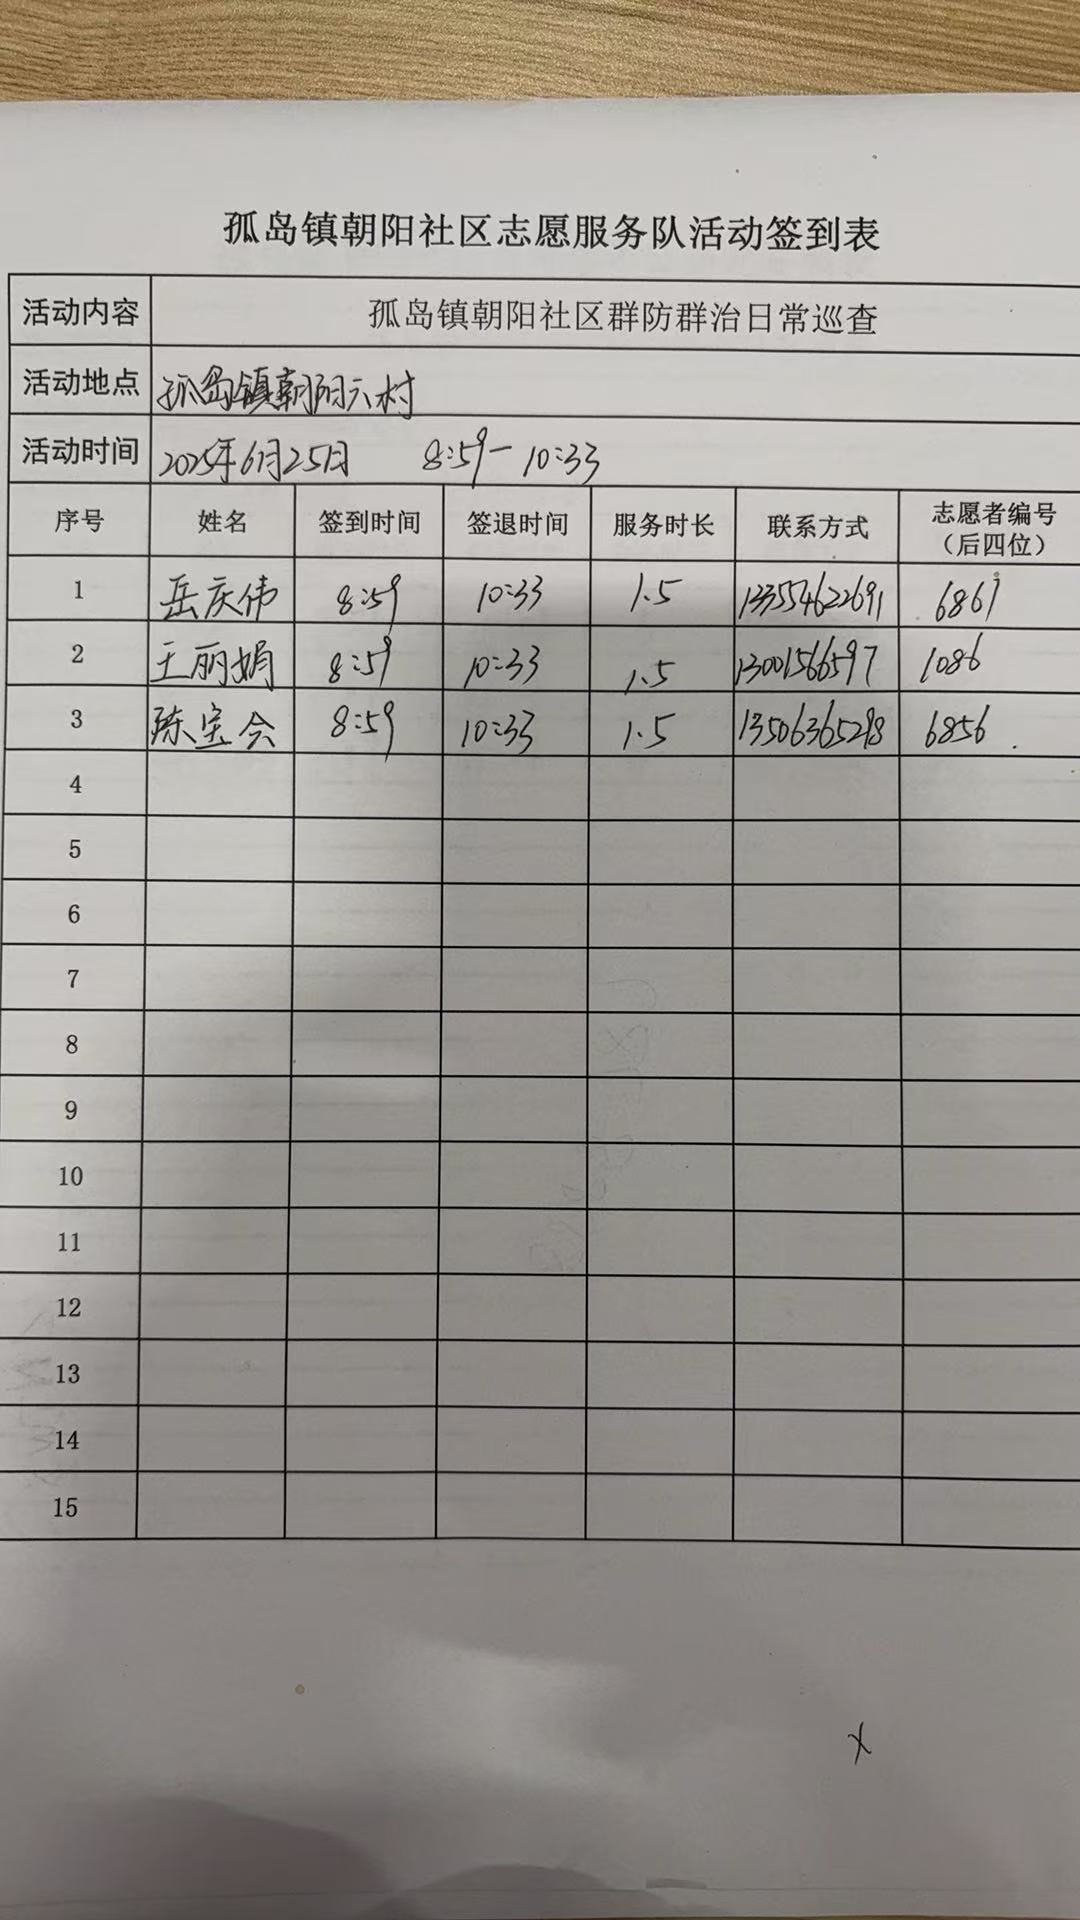 孤岛镇朝阳社区志愿服务队活动签到表
活动内容 孤岛镇朝阳社区群防群治日常巡查
活动地点 孤岛镇朝阳六村
活动时间 2025年6月25日 8:59-10:33
序号 姓名 签到时间 签退时间 服务时长 联系方式 志愿者编号（后四位）
1 岳庆伟 8:59 10:33 1.5 133554622691 6861
2 王丽娟 8:59 10:33 1.5 13001566597 1086
3 陈宝会 8:59 10:33 1.5 13506365298 6856
4
5
6
7
8
9
10
11
12
13
14
15